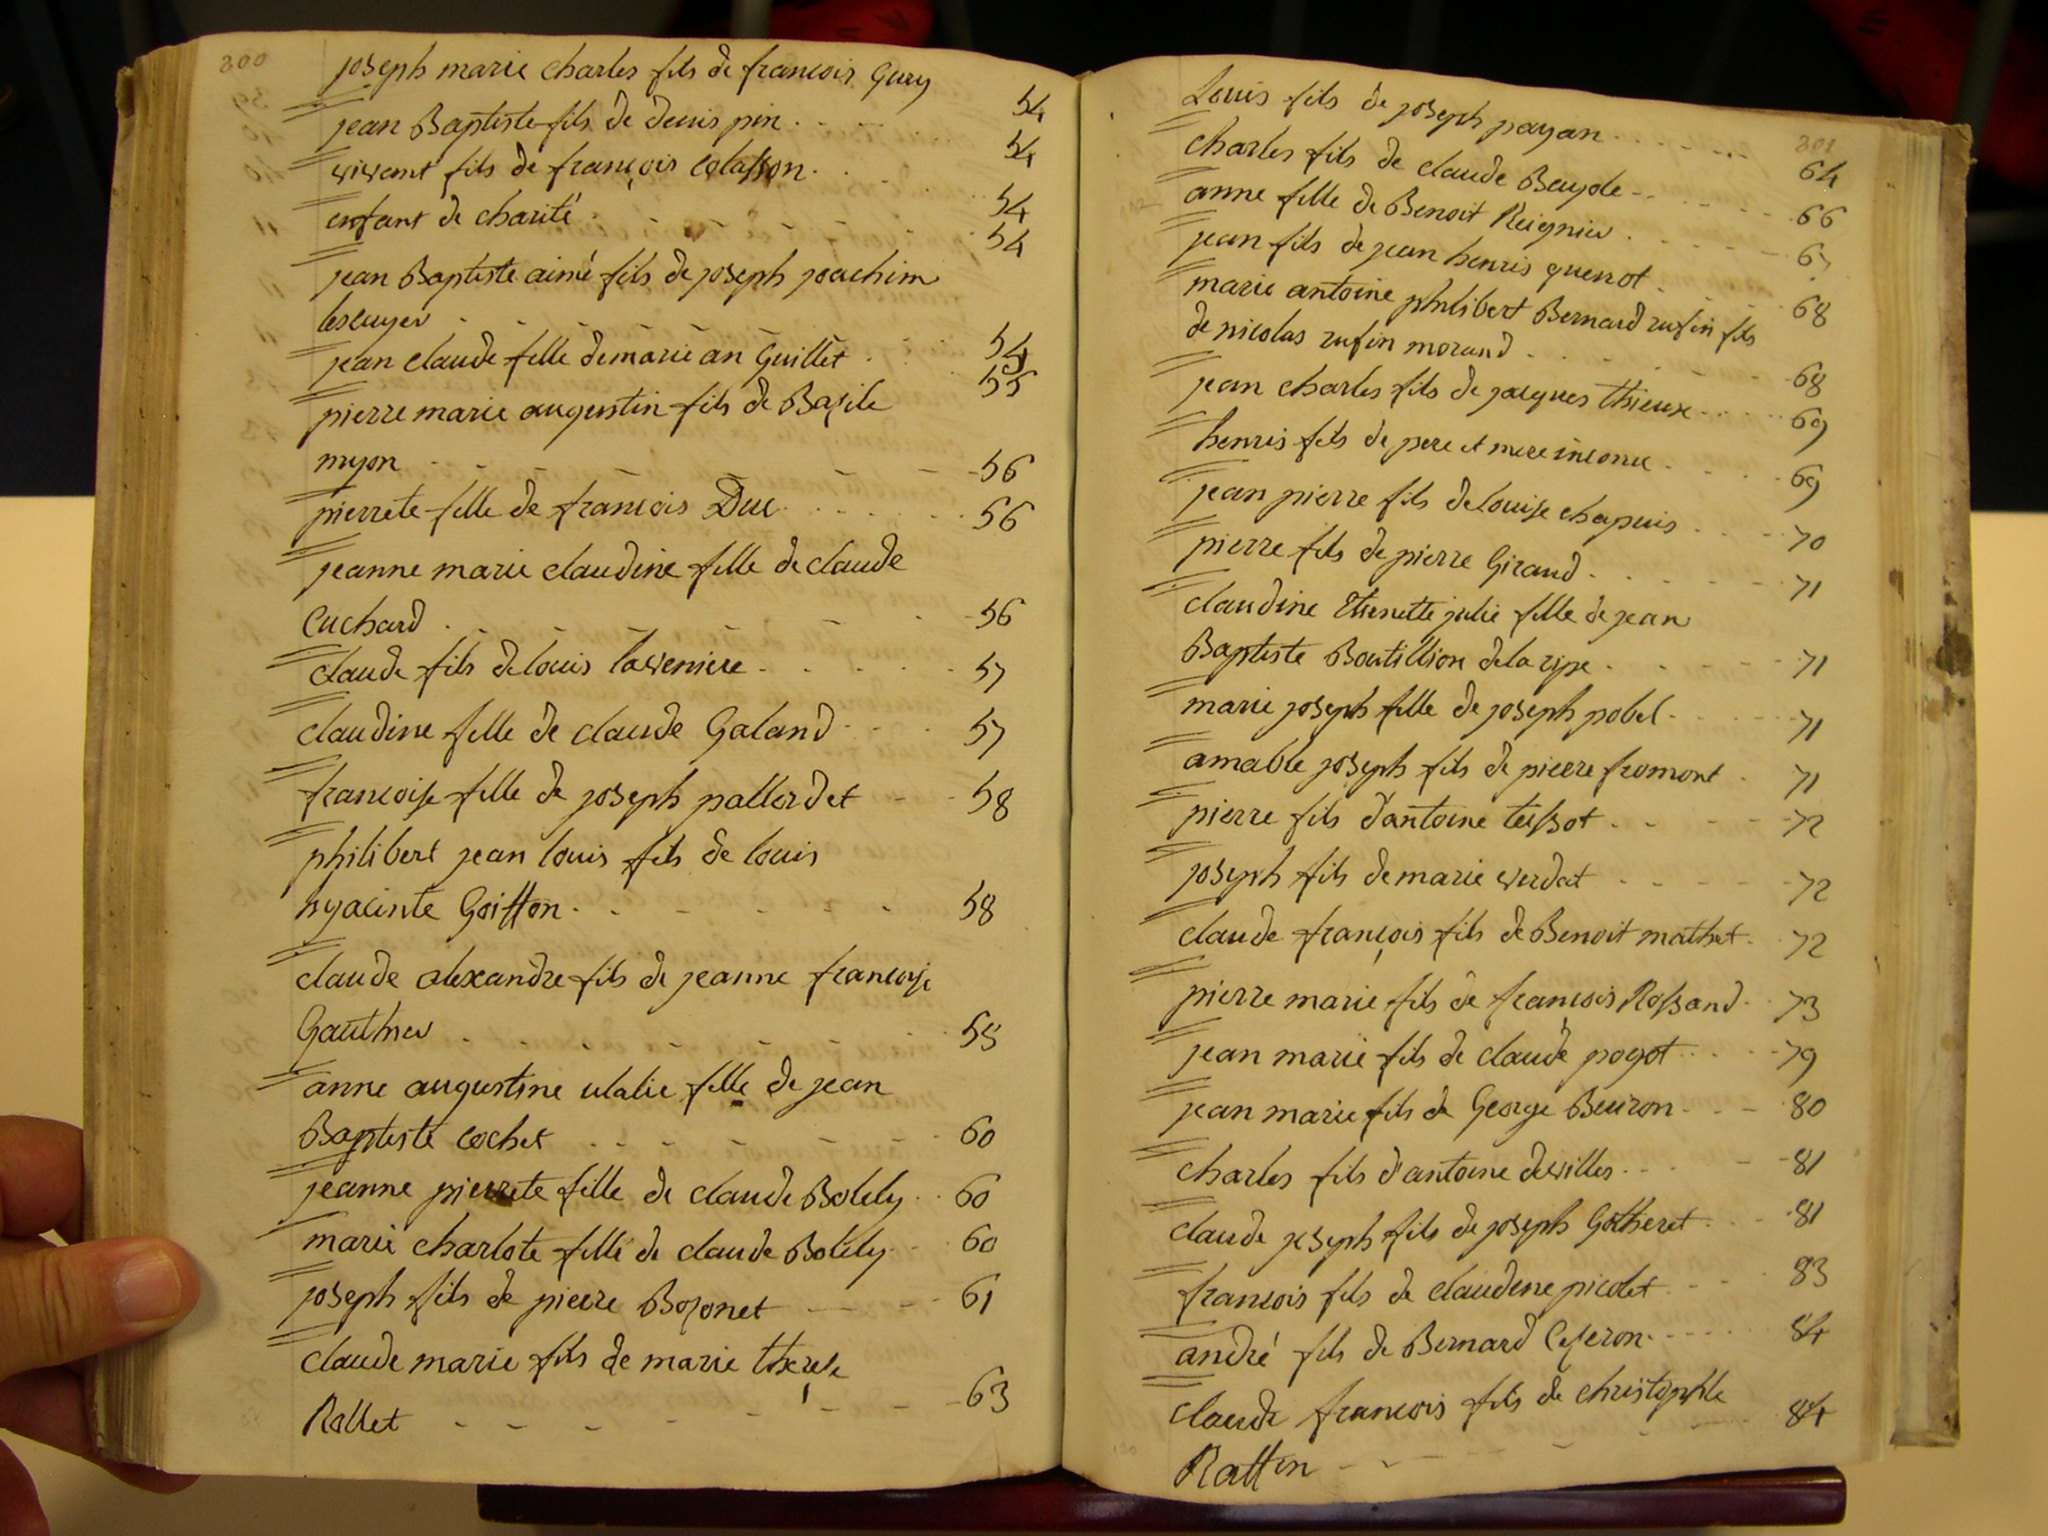 300
joseph marie charles fils de francois Gury 54
jean Baptiste fils de denis pin 54
vivant fils de françois colasson 54
enfant de charité 54
jean Baptiste aimé fils de joseph joachim
lescuyer 54
jean claude fille de marie an Guillet 55
pierre marie augustin fils de Basile
myon 56
pierrete fille de francois Duc 56
jeanne marie claudine fille de claude
Cuchard 56
claude fils de louis laveniere 57
claudine fille de claude Galand 57
francoise fille de joseph pallordet 58
philibert jean louis fils de louis
hyacinte Goiffon 58
claude alexandre fils de jeanne francoise
Gauthier 58
anne augustine ulalie fille de jean
Baptiste cochet 60
jeanne pierrete fille de claude Bolely 60
marie charlote fille de claude Bolely 60
joseph fils de pierre Bozonet 61
claude marie fils de marie therese
Rollet 63
301
Louis fils de joseph payan 64
charles fils de claude Beyde 66
anne fille de Benoit Reignier 67
jean fils de jean henris guenot 68
marie antoine philibert Bernard rufin fils
de nicolas rufin morand 68
jean charles fils de jacques thieux 69
henris fils de pere et mere inconu 69
jean pierre fils de louise chapuis 70
pierre fils de pierre Giraud 71
claudine Etienette julie fille de jean
Baptiste Boutillion dela ripe 71
marie joseph fille de joseph pobel 71
amable joseph fils de pierre fromont 71
pierre fils d'antoine teissot 72
joseph fils de marie verdat 72
claude françois fils de Benoit mathet 72
pierre marie fils de francois Rossand 73
jean marie fils de claude pogot 79
jean marie fils de George Beuron 80
charles fils d'antoine devilles 81
claude joseph fils de joseph Gotheret 81
francois fils de claudine picolet 83
andré fils de Bernard Ceseron 84
claude francois fils de christophle 84
Ratton